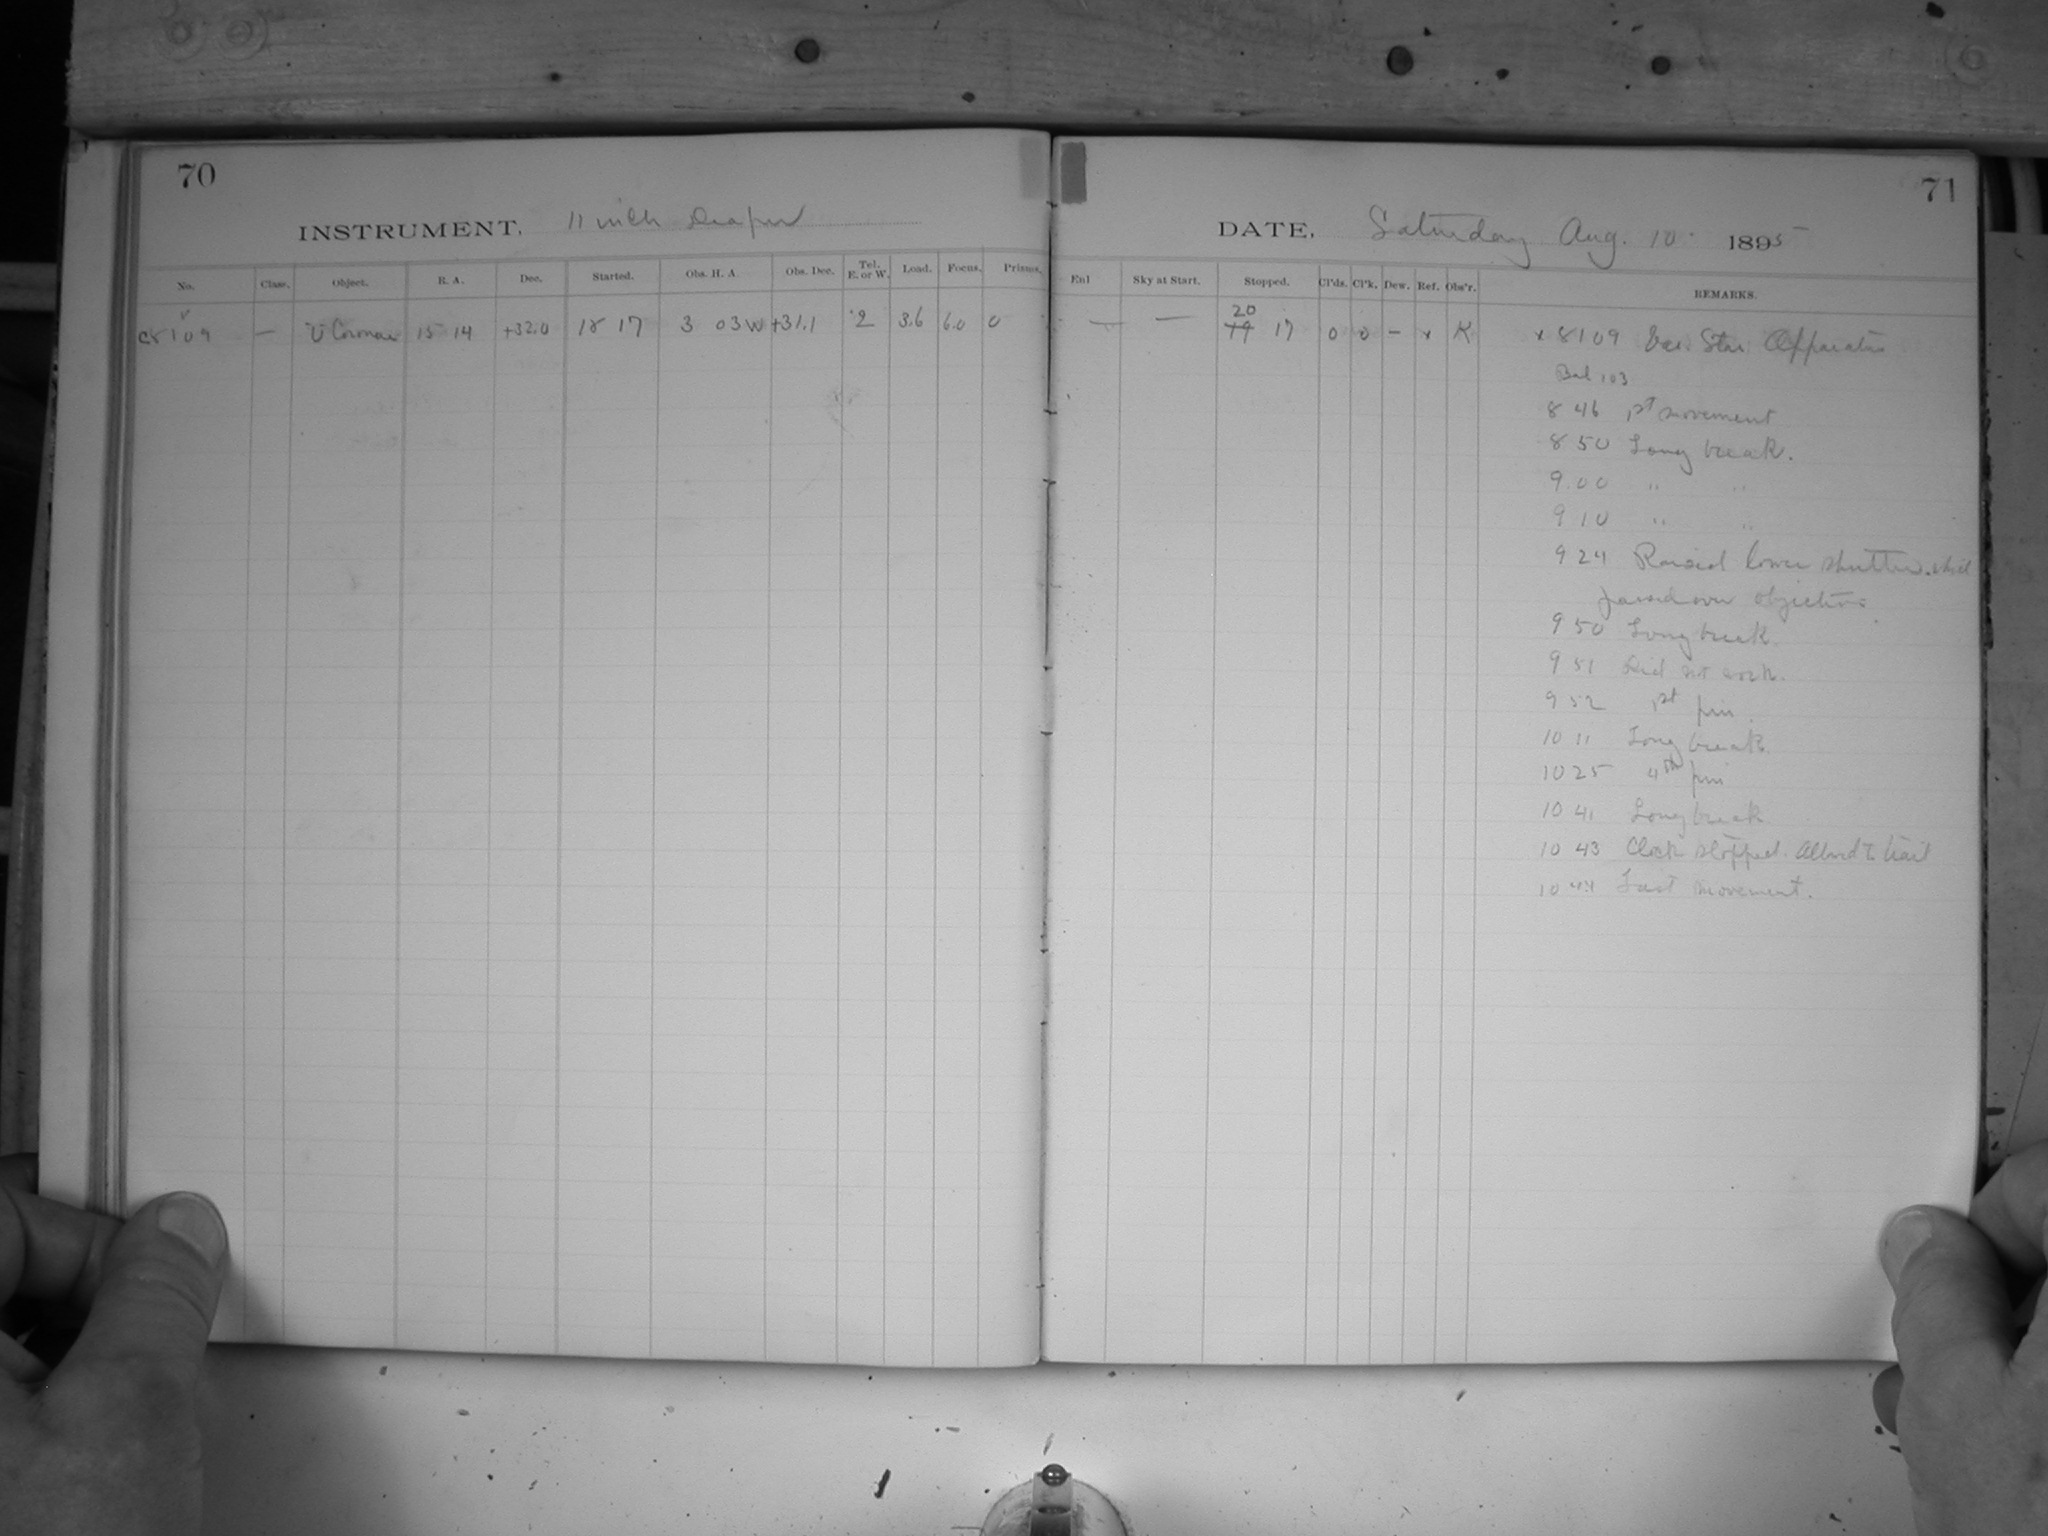 70
INSTRUMENT. 11 inch Draper
No. Class. Object. R. A. Dec. Started. Obs. H. A. Obs. Dec. Tel. E. or W. Load. Focus. Prisms.
C8109 — U Coronae 15 14 +32.0 18 17 3 03W +31.1 2 3.6 6.0 0
71
DATE. Saturday Aug. 10 1895
Enl Sky at Start. Stopped. Cl'ds. Cl'k. Dew. Ref. Obs'r. REMARKS.
20
— — 19 17 0 0 – x K x 8109 Var. Star Apparatus
Bal 103
8 46 1st movement
8 50 Long break.
9.00 " "
9 10 " "
9 24 Raised lower shutter which
passed over objective
9 50 Long break.
9 51 Did not work.
9 52 1st pin.
10 11 Long break.
10 25 4th pin
10 41 Long break
10 43 Clock stopped. to trail
10 44 Last movement.